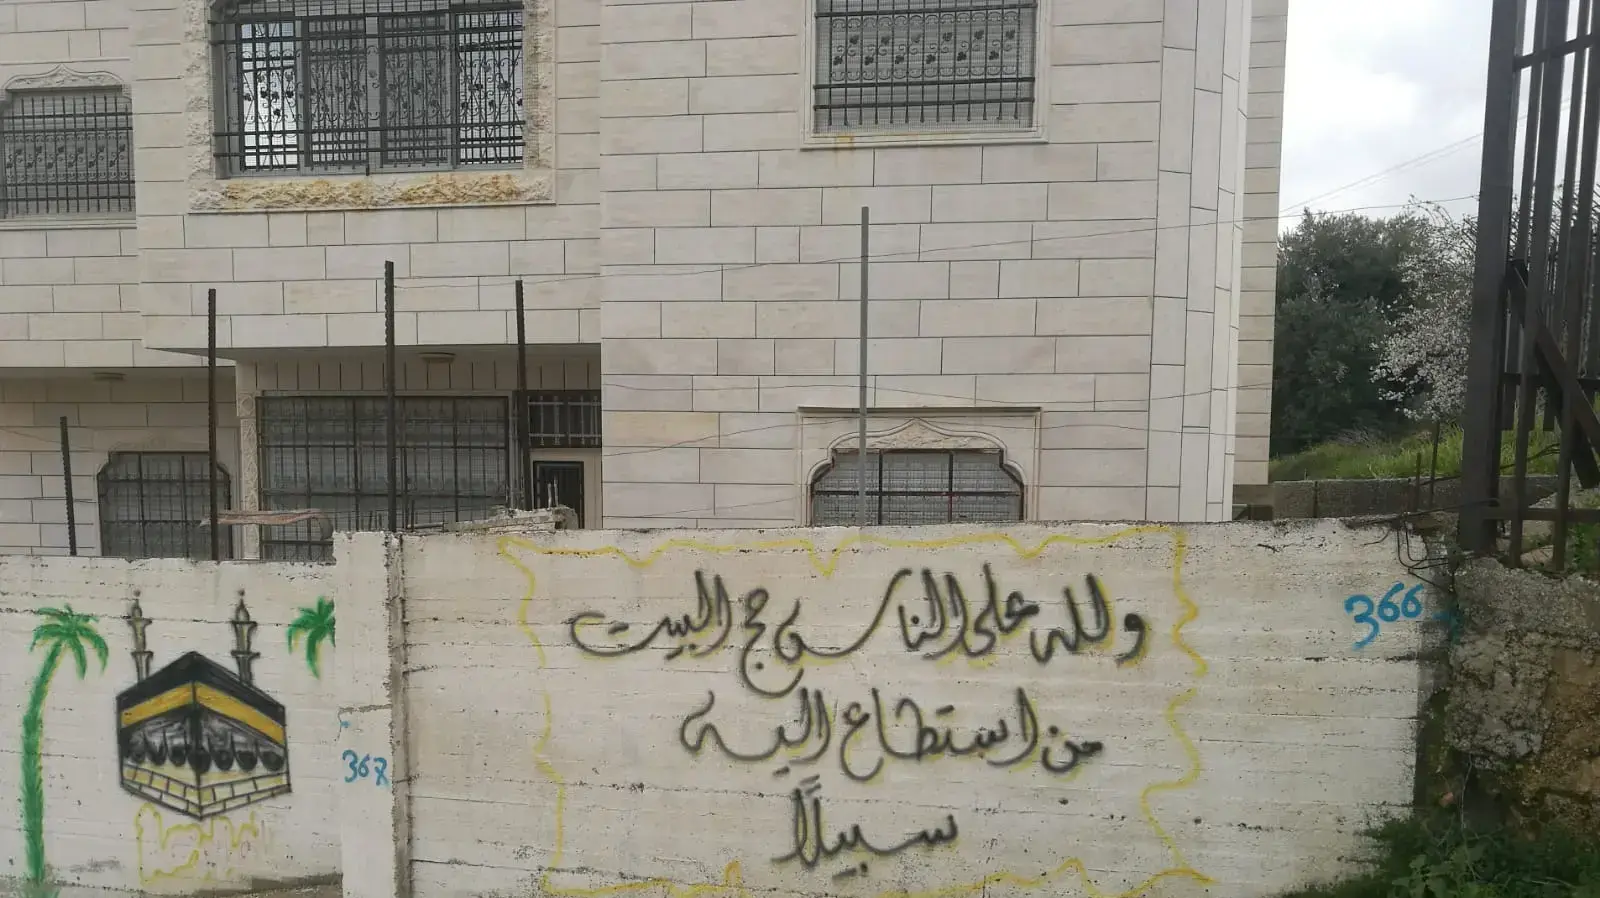 ولله على الناس حج البيت
من استطاع اليه
سبيلًا
366
367